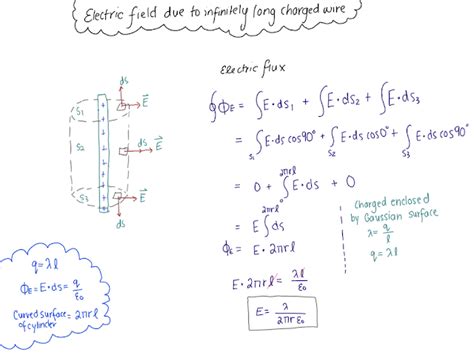 Electric field due to infinitely long charged wire
Electric flux
∮ϕE = ∫E·ds1 + ∫E·ds2 + ∫E·ds3
= ∫S1 E·ds cos90° + ∫S2 E·ds cos0° + ∫S3 E·ds cos90°
= 0 + ∫0^2πrl E·ds + 0
= E ∫0^2πrl ds
ϕE = E · 2πrl
E · 2πrl = λl/ε0
E = λ/2πrε0
Charged enclosed
by Gaussian surface
λ = q/l
q = λl
ds
S1
E
ds
S2
E
S3
E
ds
q = λl
ϕE = E·ds = q/ε0
Curved surface = 2πrl
of cylinder